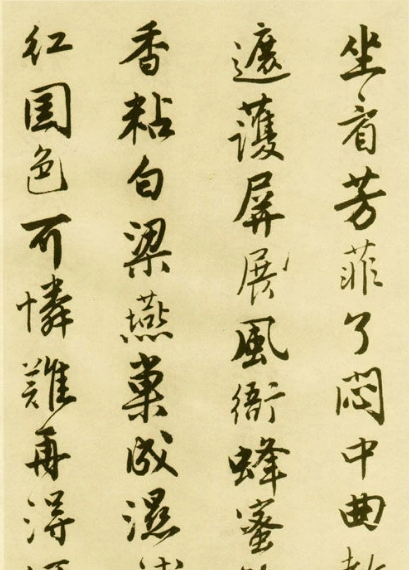 坐看芳菲了悶中曲
遮護屏展風銜蜂蜜
香粘白梁燕巢成濕
紅国色可憐難再得